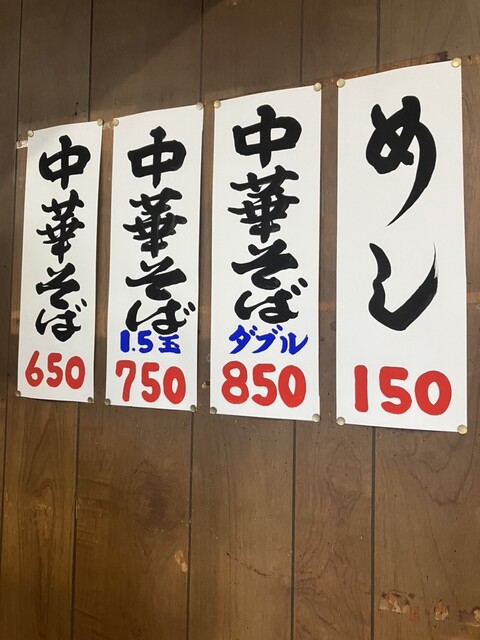 中華そば
650
中華そば
1.5玉
750
中華そば
ダブル
850
めし
150